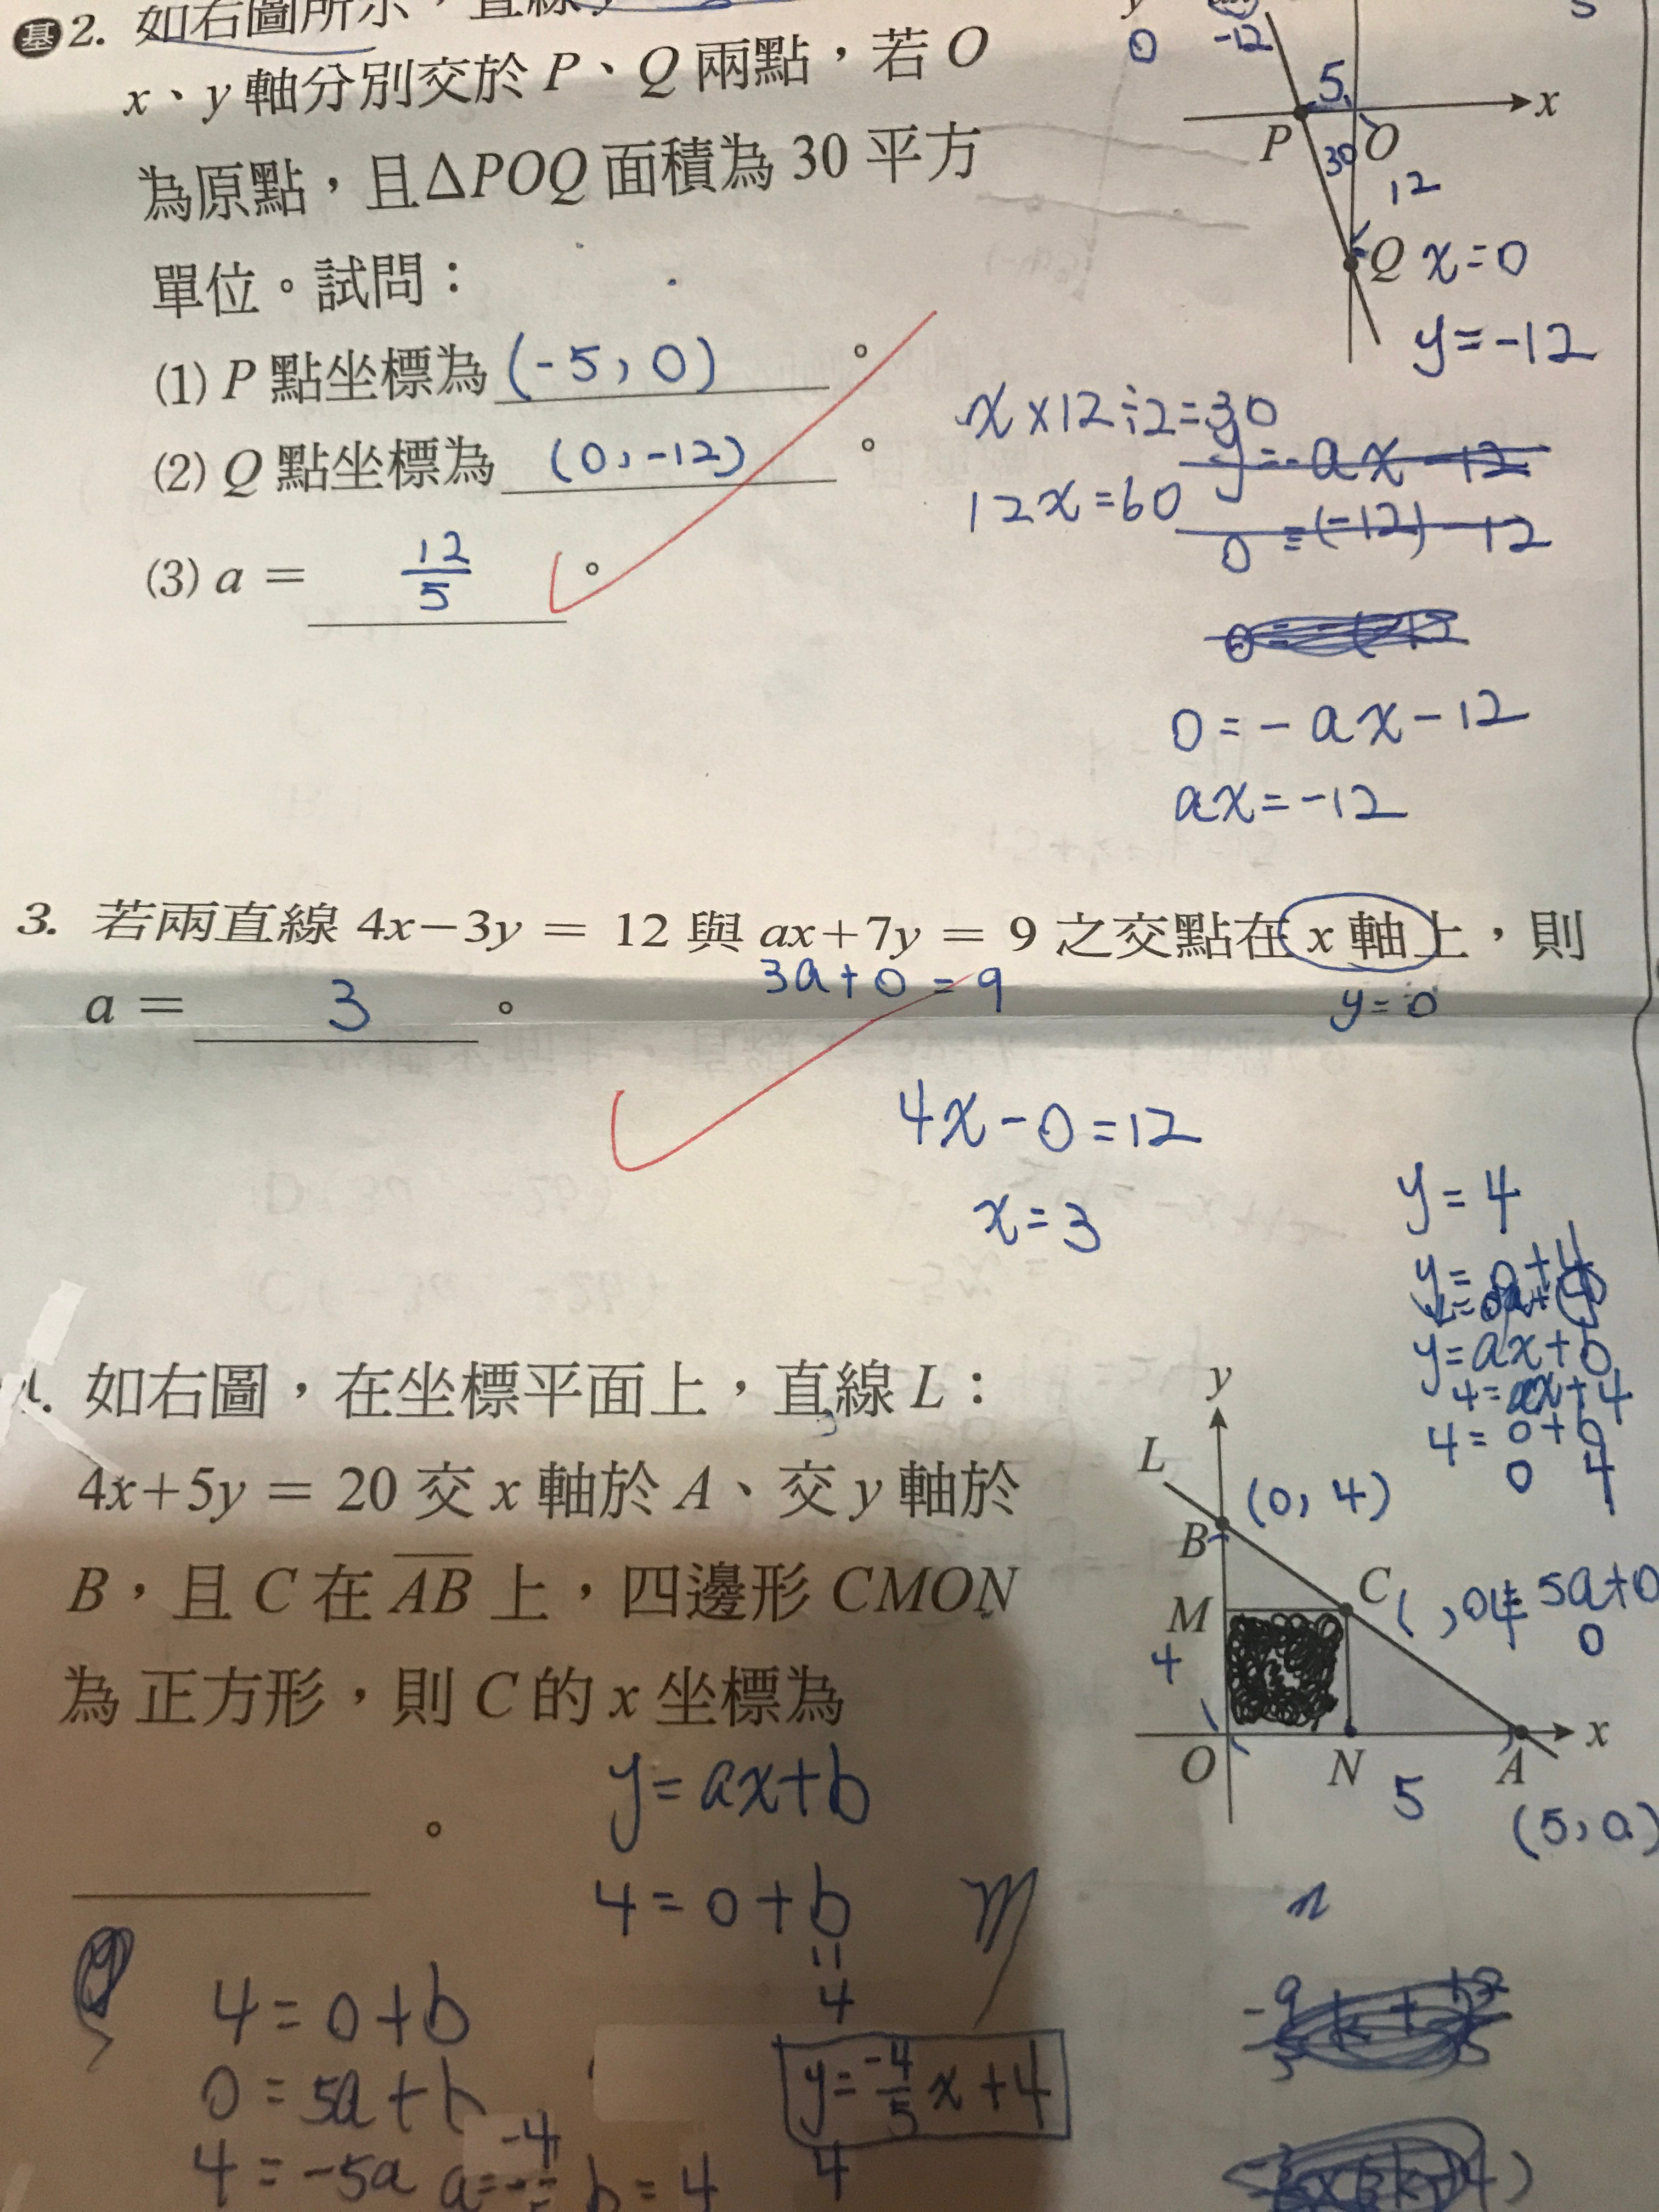 基 2. 如右圖所示，直線
x、y 軸分別交於 P、Q 兩點，若 O
為原點，且ΔPOQ 面積為 30 平方
單位。試問：
(1) P 點坐標為 (-5, 0) 。
(2) Q 點坐標為 (0, -12) 。
(3) a = 12/5 。
y
0
-12
5
x
P
O
30
12
Q
x=0
y=-12
x×12÷2=30
12x=60
y=-ax-12
0=(-12)-12
0=-ax-12
ax=-12
3. 若兩直線 4x-3y = 12 與 ax+7y = 9 之交點在 x 軸上，則
a = 3 。
3a+0=9
y=0
4x-0=12
x=3
如右圖，在坐標平面上，直線 L：
4x+5y = 20 交 x 軸於 A、交 y 軸於
B，且 C 在 AB 上，四邊形 CMON
為正方形，則 C 的 x 坐標為
。
y=4
y=0+4
y=ax+b
4=ax+4
4=0+b
0 4
y
L
B
(0, 4)
M
C
5a+0
0
4
O
N
A
x
5
(5, 0)
y=ax+b
4=0+b
4
m
n
4=0+b
0=5a+b
4=-5a
b=4
y=-4/5x+4
4